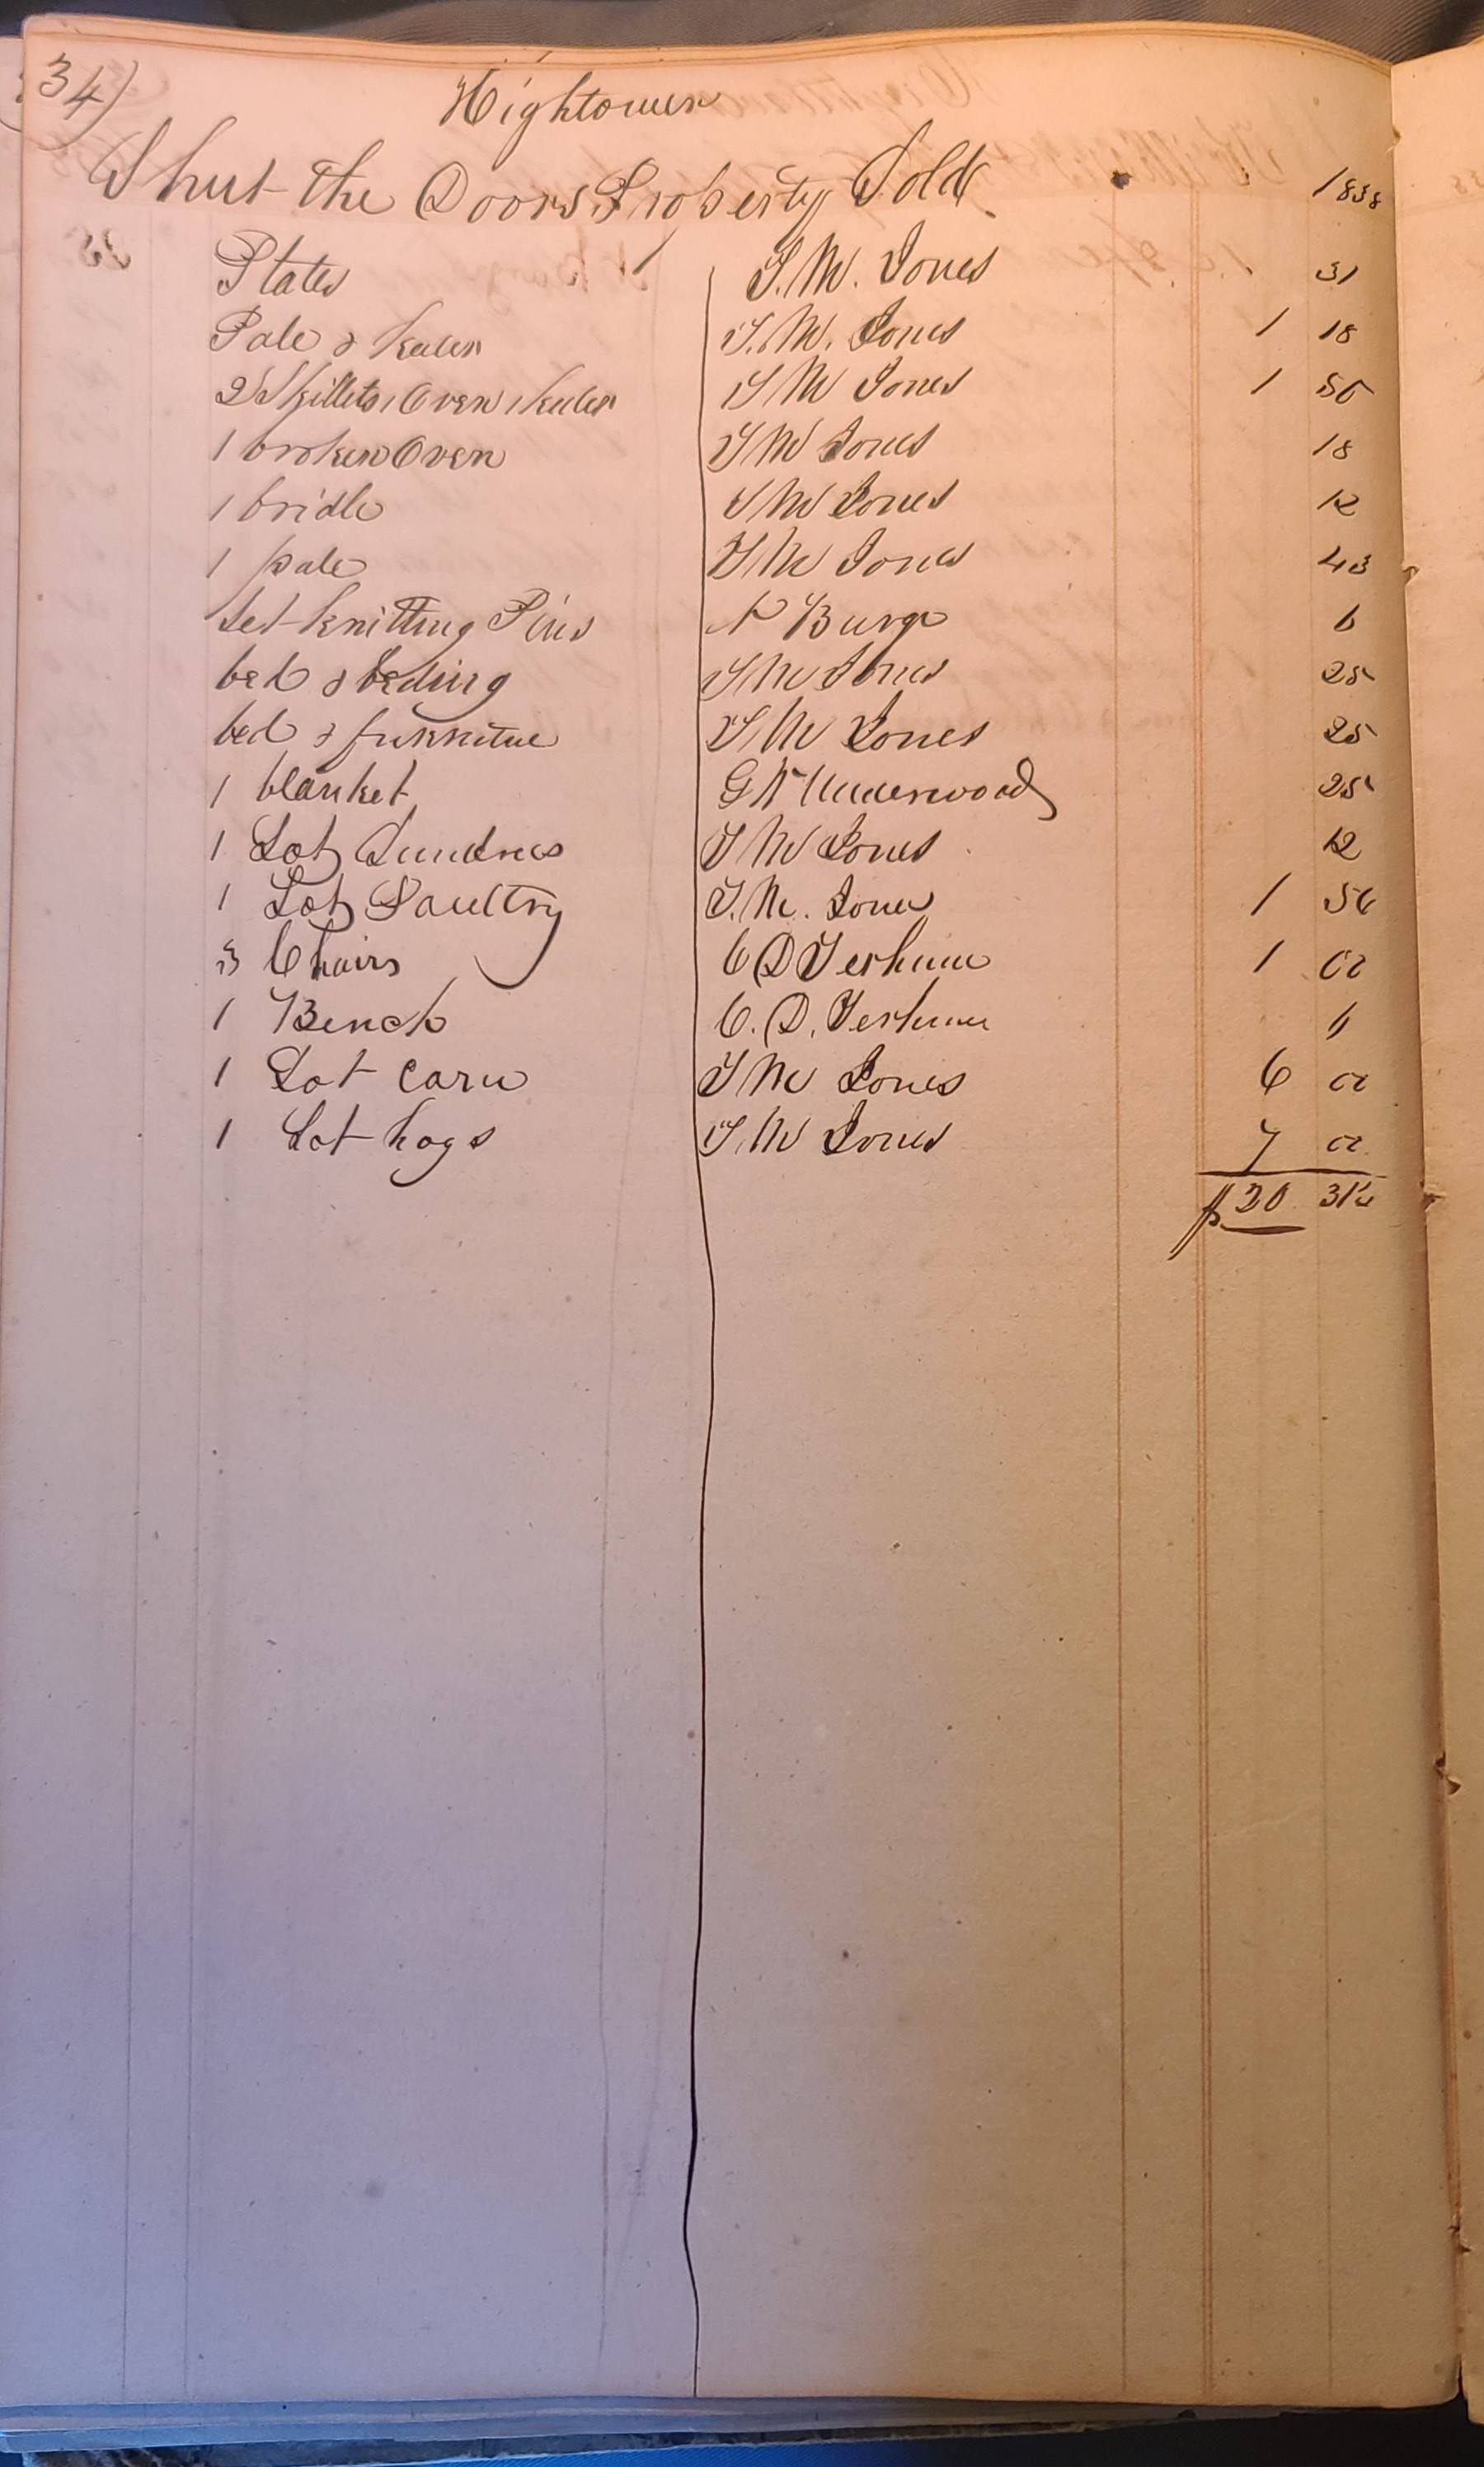 34)
Hightower
Shut the Doors Property Sold 1838
Plates T. M. Jones 31
Pale & Keeler T. M. Jones 1 18
2 Skillets 1 Oven 1 keeler T M Jones 1 50
1 broken Oven T M Jones 18
1 bridle T M Jones 12
1 pale T M Jones 43
Set knitting Pins Burge 6
bed & beding T M Jones 25
bed & furnitue T M Jones 25
1 blanket G W Underwood 25
1 Lot Sundries T M Jones 12
1 Lot Paultry T. M. Jones 1 56
3 Chairs C D Terhune 1 00
1 Bench C. D. Terhune 6
1 Lot Corn T M Jones 6 00
1 Lot hogs T M Jones 7 00
$20 31¼